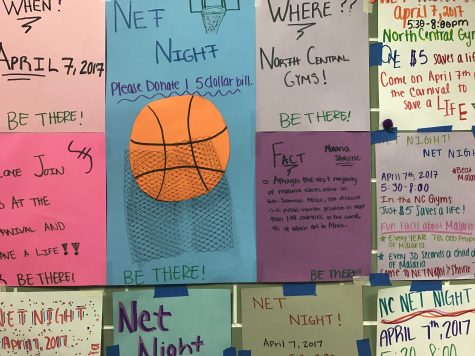 WHEN?
APRIL 7, 2017
BE THERE!
NET
NIGHT
Please Donate 1 5 dollar bill.
BE THERE!
WHERE??
NORTH CENTRAL
GYMS!
BE THERE!
NET NIGHT
april 7, 2017
5:30-8:00pm
North Central Gym
ONE $5 saves a life
Come on April 7th
the Carnival to
save a LIFE
COME JOIN
US AT THE
CARNIVAL AND
SAVE A LIFE!!
BE THERE!
FACT
Malaria
Statistic
Although the vast majority
of malaria cases occur in
Sub-Saharan Africa, the disease
is a public-health problem in more
than 109 countries in the world,
45 of which are in Africa.
NET NIGHT
NET NIGHT
April 7th, 2017
5:30-8:00
In the NC Gyms
Just $5 Saves a life!
Fun Facts about Malaria
Every YEAR
People
of Malaria
Every 30 Seconds a child
of Malaria
Come to NET Night
NET NIGHT
April 7, 2017
Net
Night
NET
NIGHT!
APRIL 7, 2017
NC NET NIGHT
APRIL 7th, 2017
5:30 8:00